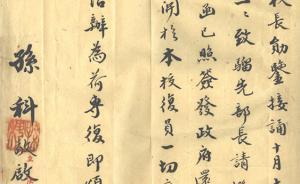 長勛鑒接誦十月
一一致騮先部長請
函已照簽發政府還
開於本校復員一切
洽辦為荷專復即頌
孫科敬啟